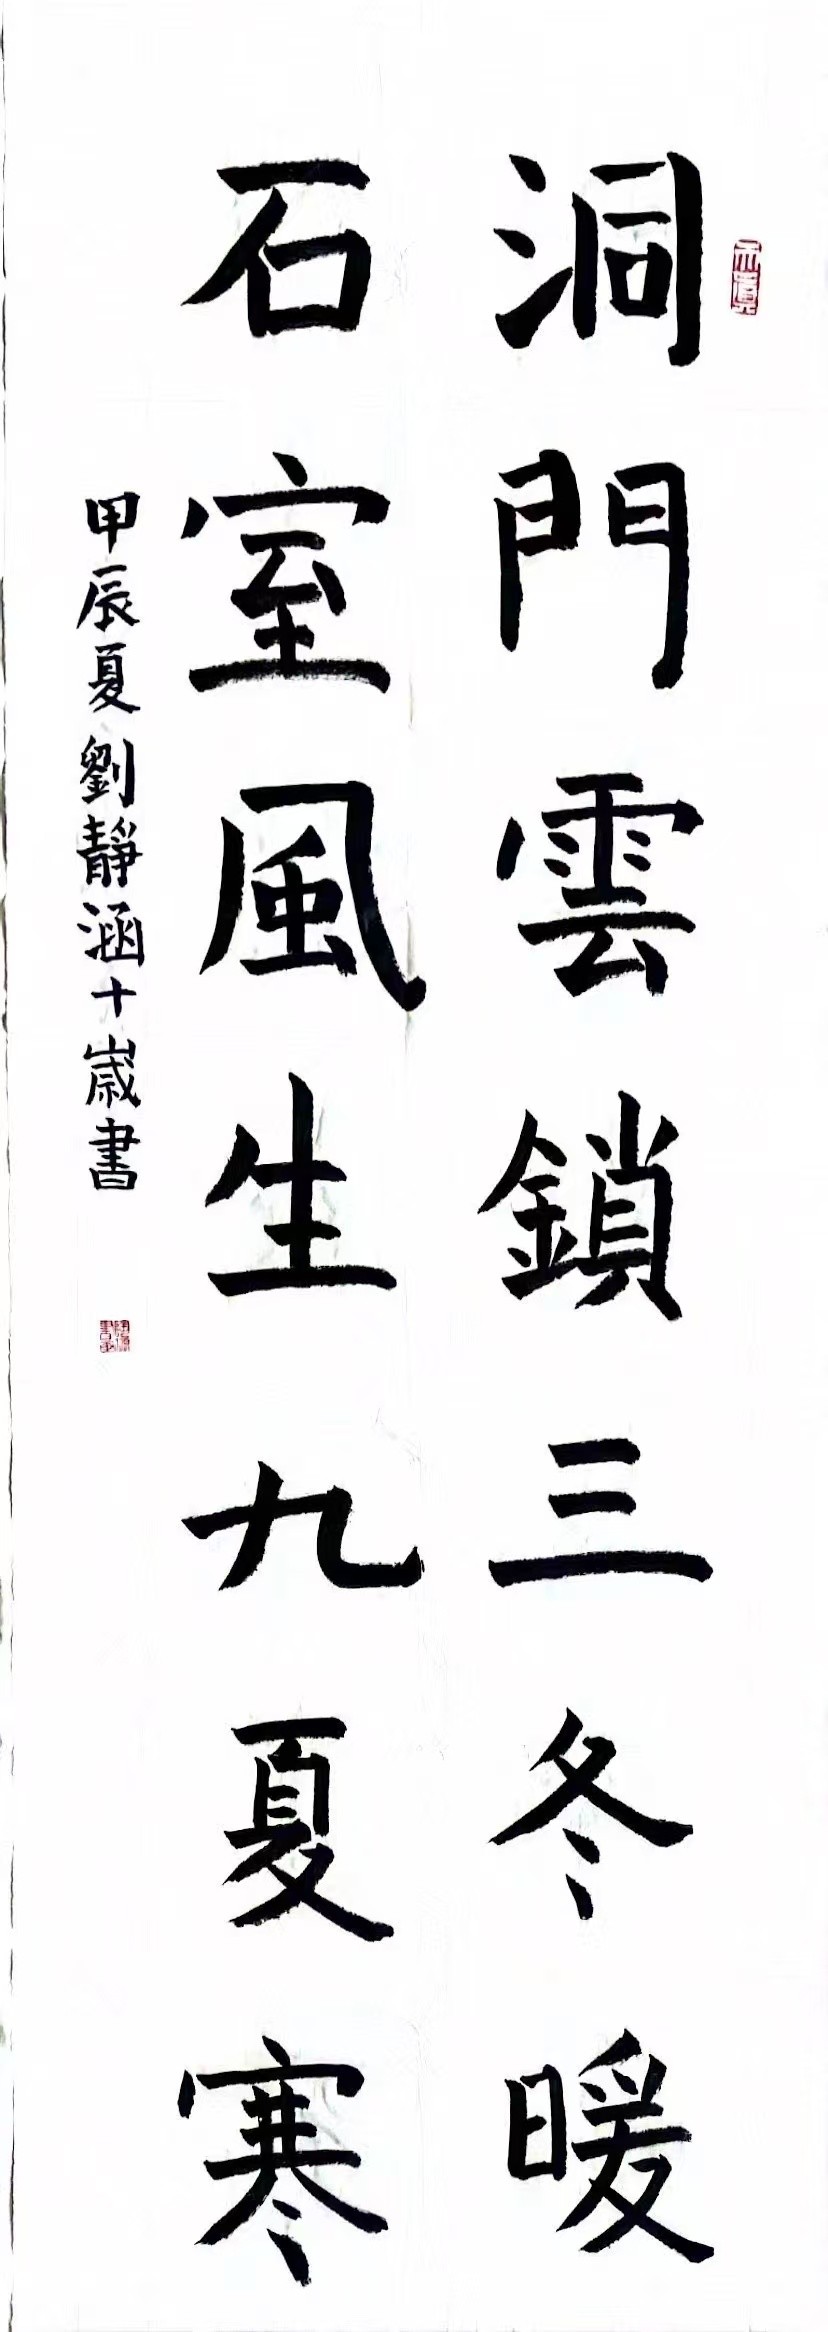 洞門雲鎖三冬暖
石室風生九夏寒
甲辰夏劉靜涵十歲書